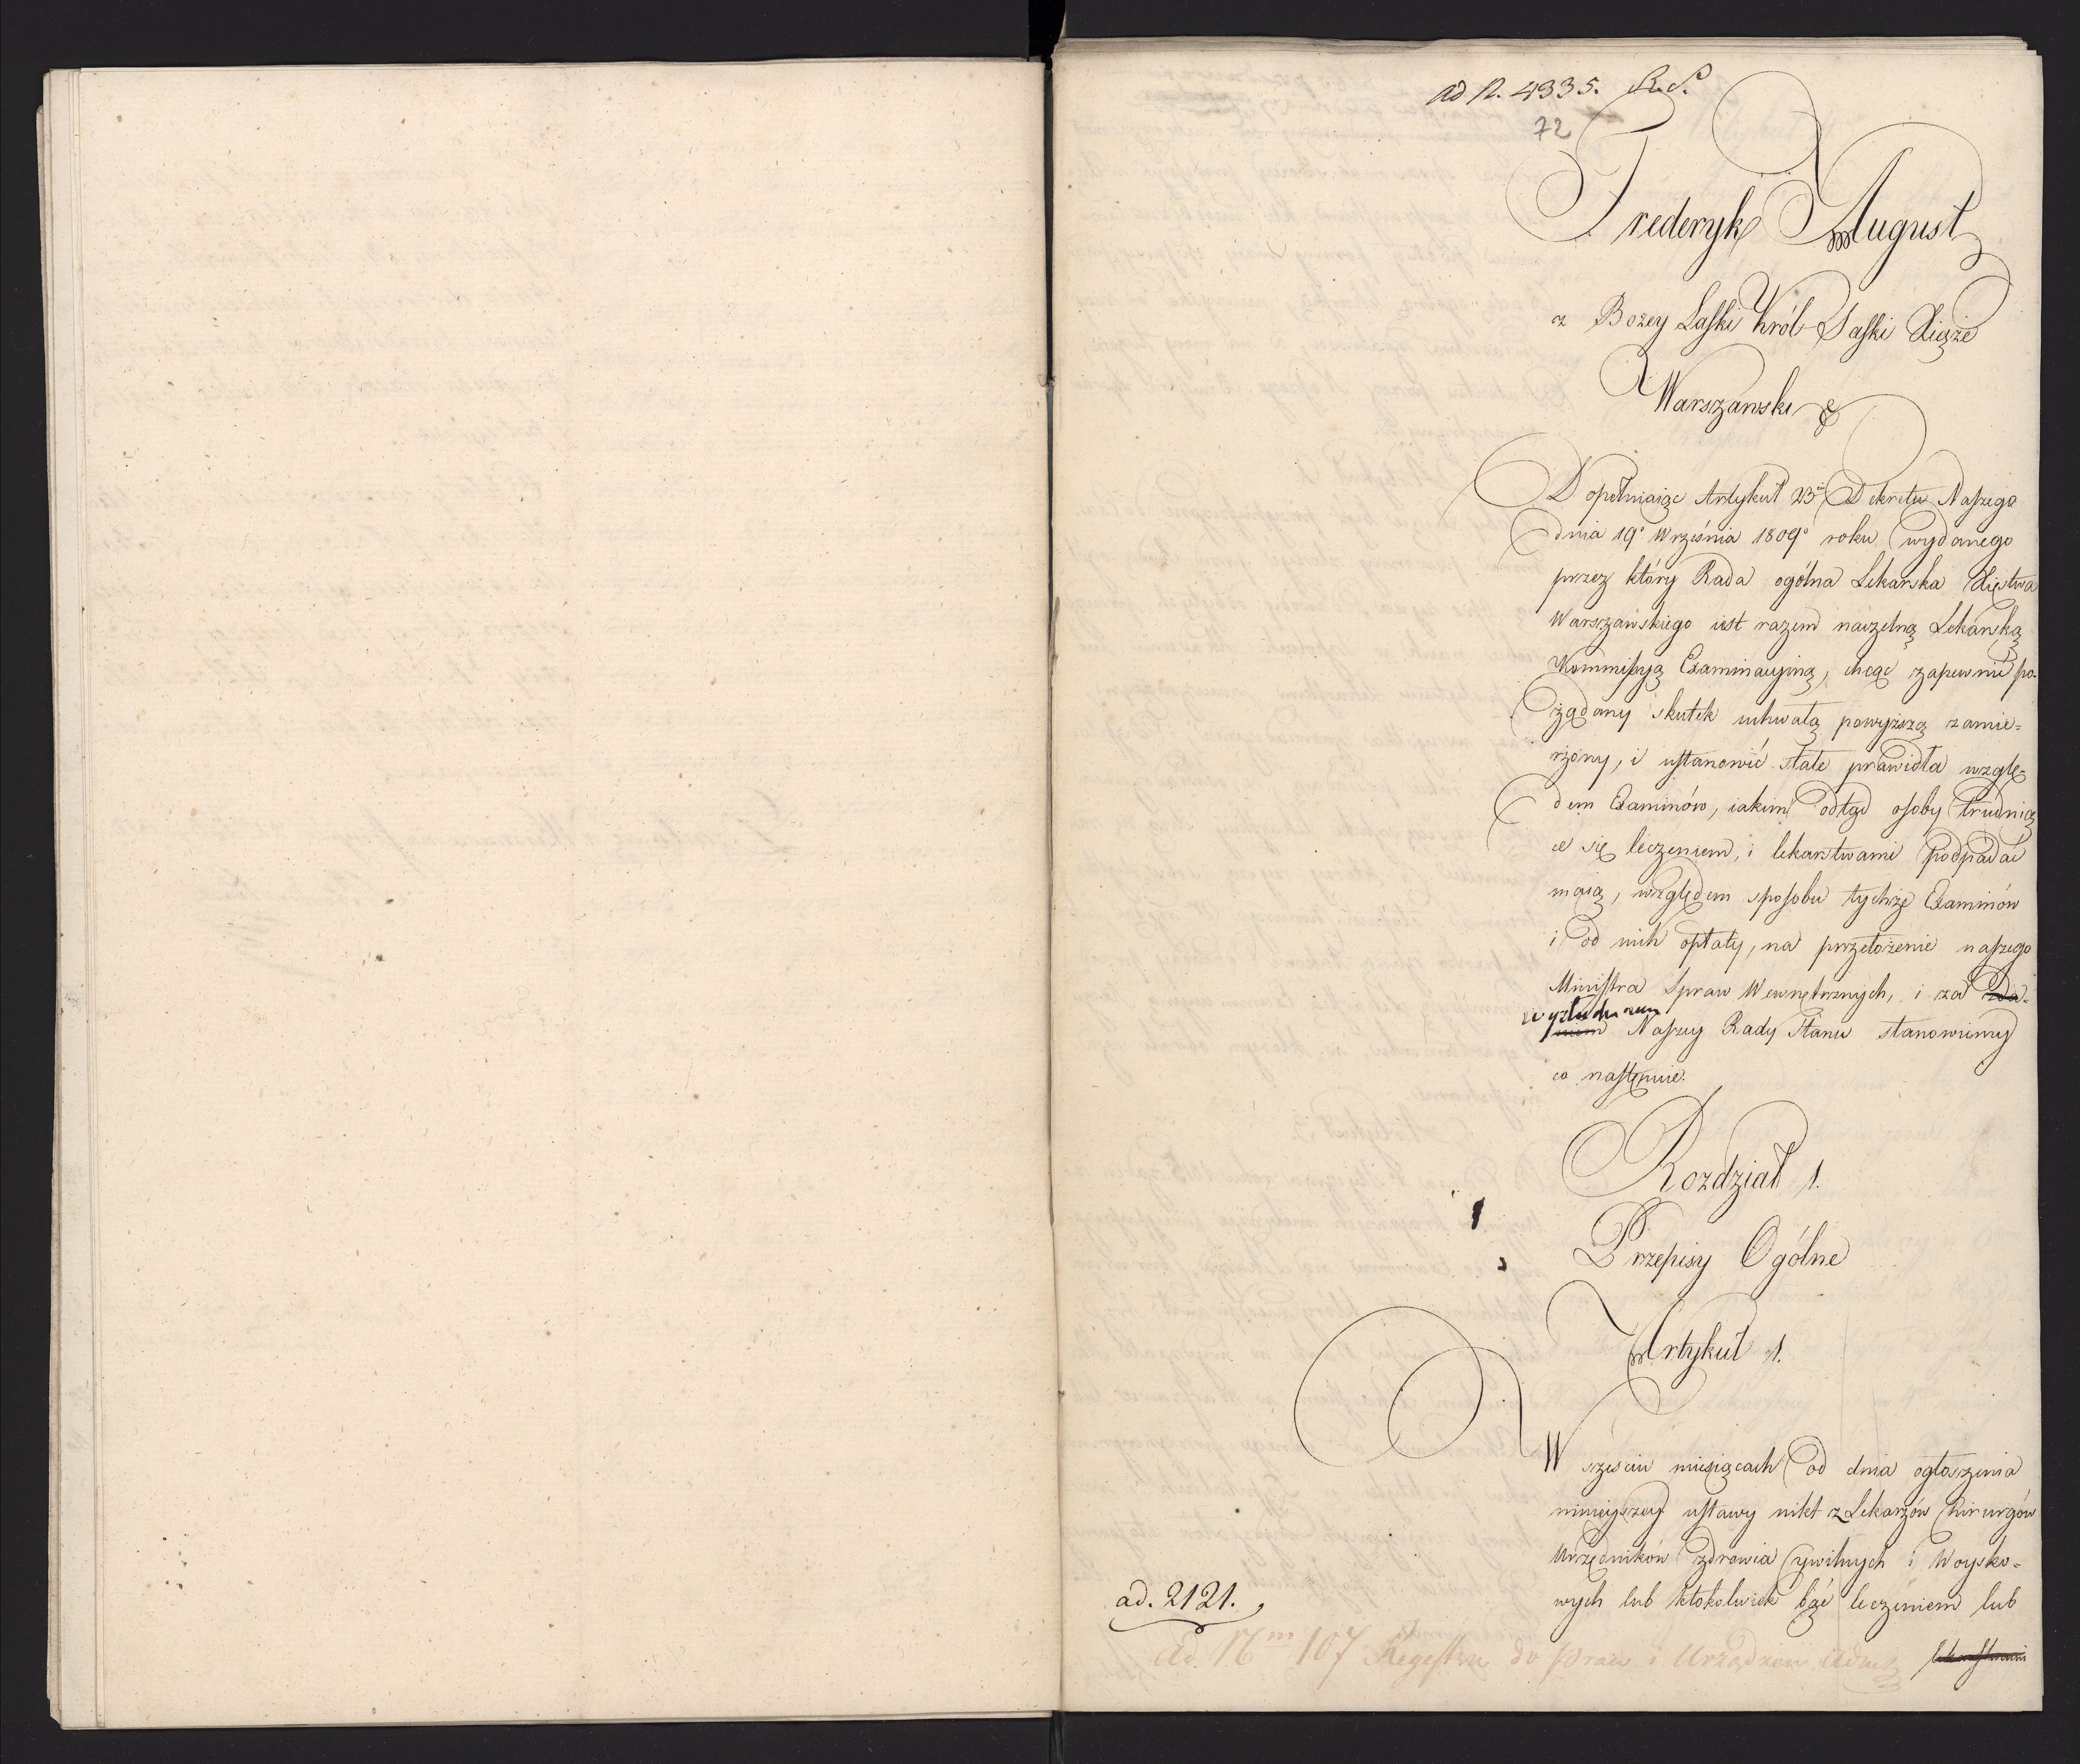 ad N. 4335. R.S.
72
Frederyk August
z Bożey Łaski Król Saski Xiąże
Warszawski &
Dopełniaiąc Artykuł 23ci Dekretu Naszego
dnia 19o Września 1809o roku wydanego
przez który Rada ogólna Lekarska Xięstwa
Warszawskiego iest razem naczelną Lekarską
Kommissyą Examinacyiną, chcąc zapewnić po-
żądany skutek uchwałą powyższą zamie-
rzony, i ustanowić stałe prawidła wzglę-
dem Examinów, iakim odtąd osoby trudnią
ce się leczeniem, i lekarstwami podpadać
maią, względem sposobu tychże Examinów
i od nich opłaty, na przełożenie naszego
Ministra Spraw Wewnętrznych, i za zda-
wysłuchaniem
niem Naszey Rady Stanu stanowiemy
co następuie.
Rozdział 1.
Przepisy Ogólne
Artykuł 1.
W sześciu miesiącach od dnia ogłoszenia
ninieyszey ustawy nikt z Lekarzów Chirurgów
Urzędników zdrowia cywilnych i Woysko-
wych lub ktokolwiek bądź leczeniem lub
lekarstwami
ad. 2121.
Ad Nm 107 Regestru do Praw i Urządzeń Adm